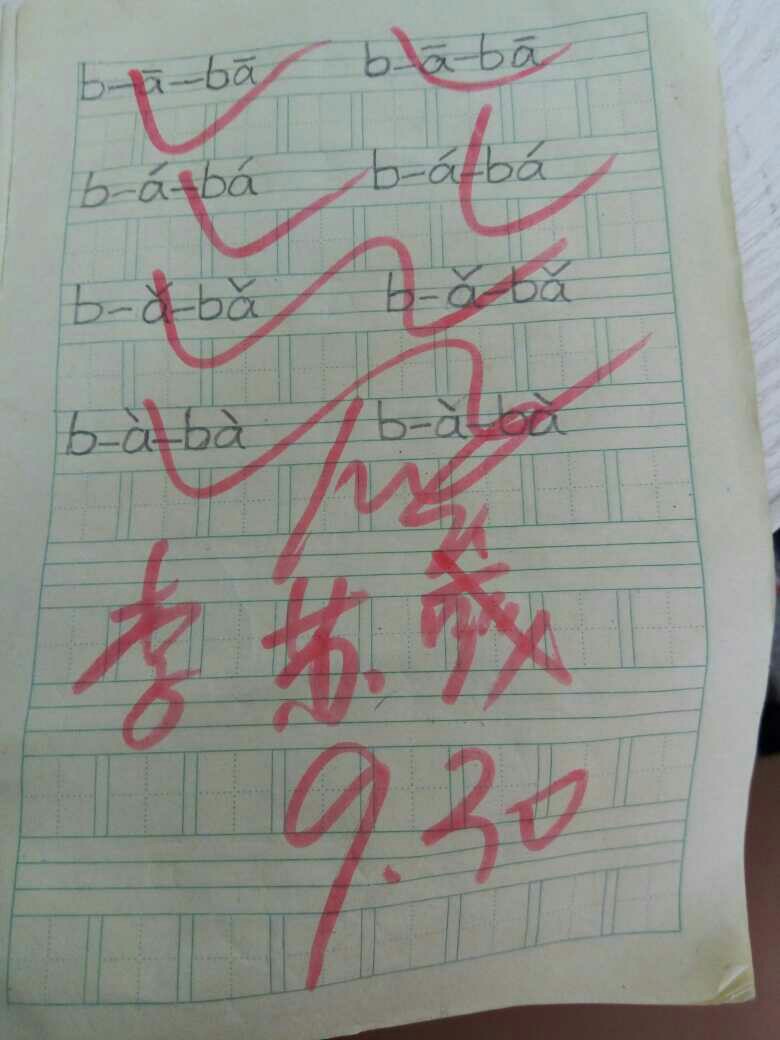 b-ā-bā b-ā-bā
b-á-bá b-á-bá
b-ǎ-bǎ b-ǎ-bǎ
b-à-bà b-à-bà
李苏
9.30